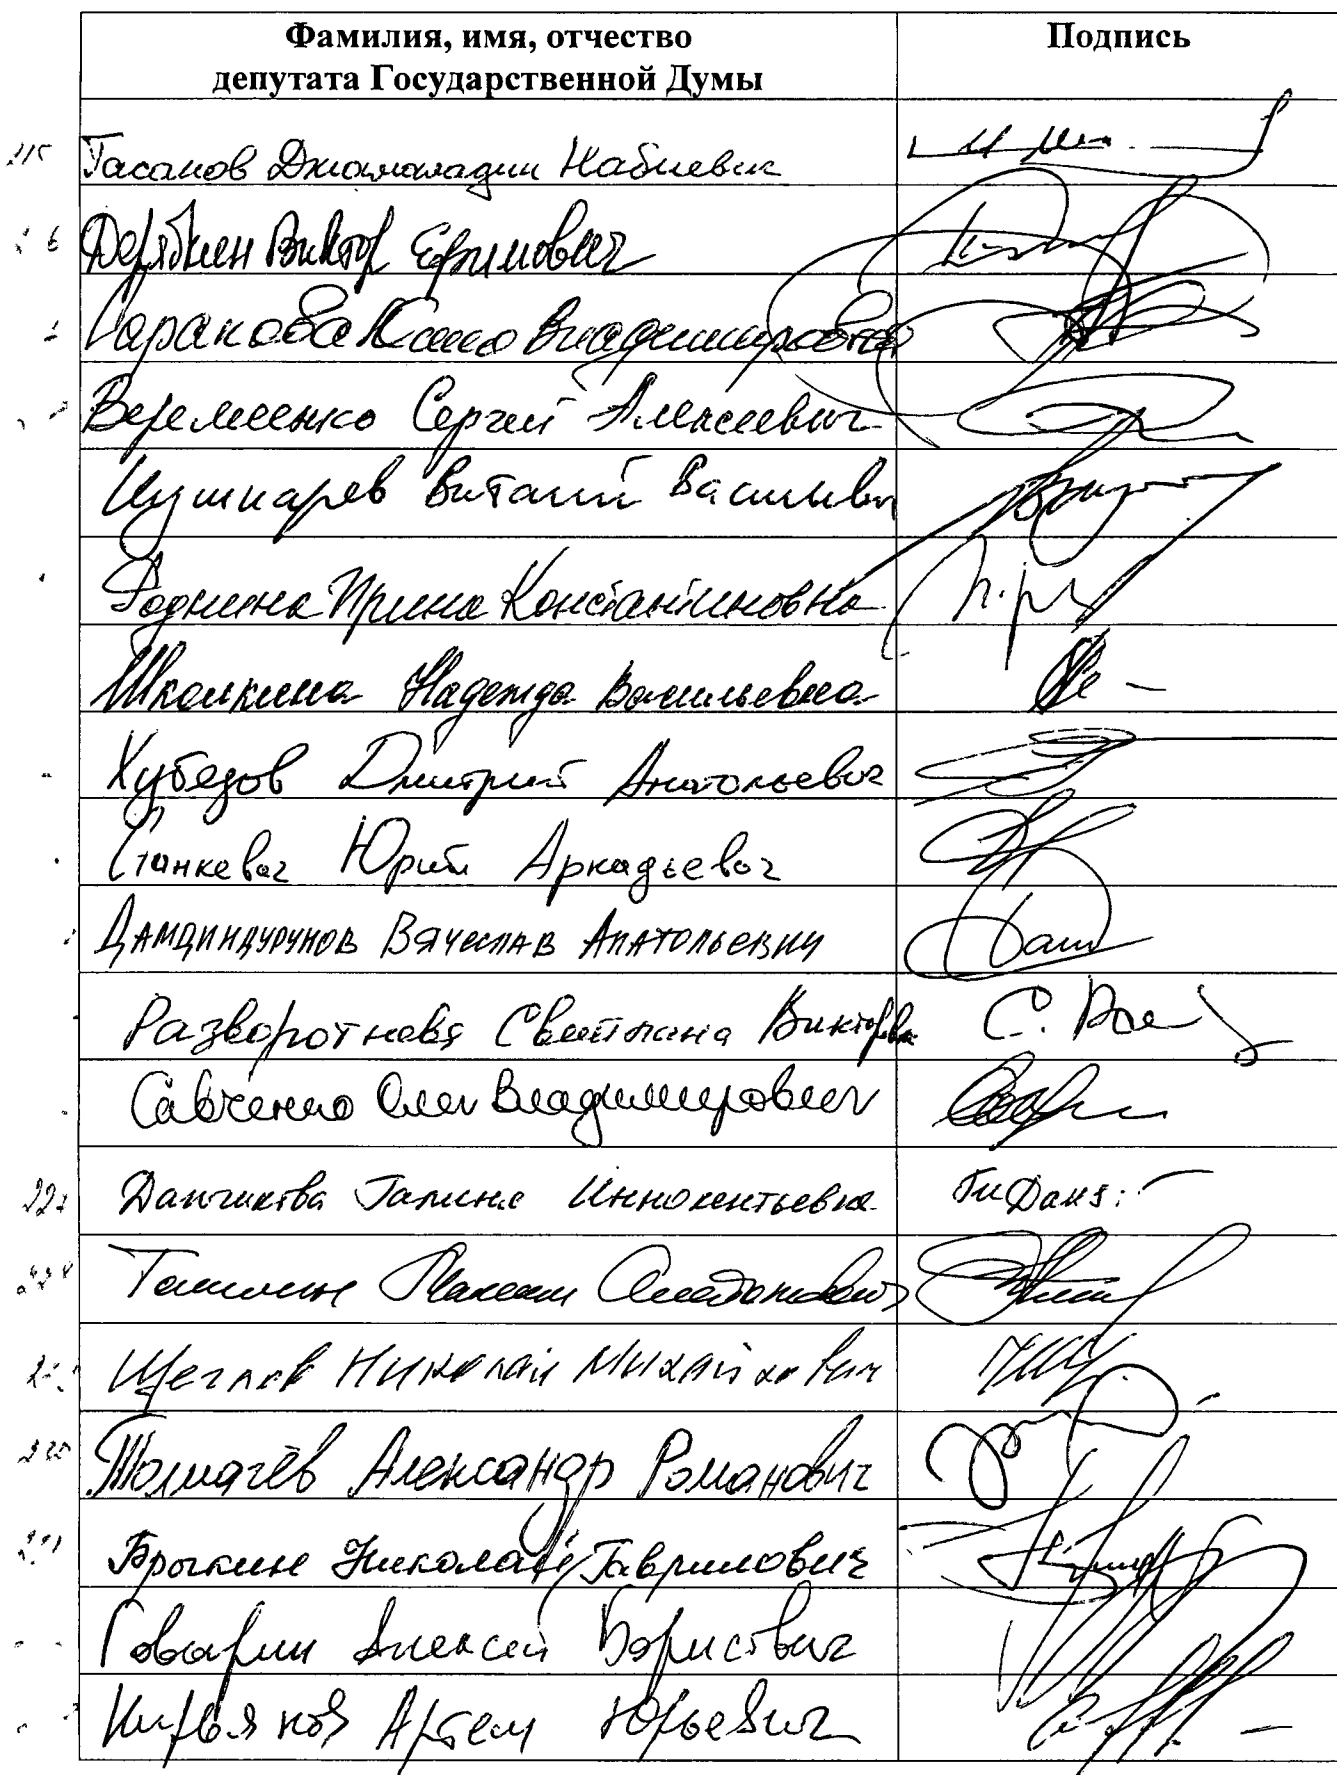 Фамилия, имя, отчество
депутата Государственной Думы
Подпись
Гасанов Джамаладин Набиевич
Дерябкин Виктор Ефимович
Горякова Владимировна
Веремеенко Сергей Алексеевич
Пушкарев Виталий Васильевич
Роднина Ирина Константиновна
Школкина Надежда Васильевна
Хубезов Дмитрий Анатольевич
Станкевич Юрий Аркадьевич
Дамдинцурунов Вячеслав Анатольевич
Разворотнева Светлана Викторовна
Савченко Олег Владимирович
Данчикова Галина Иннокентьевна
Топилин Максим Анатольевич
Щеглов Николай Михайлович
Толмачёв Александр Романович
Брыкин Николай Гаврилович
Говырин Алексей Борисович
Кирьянов Артем Юрьевич